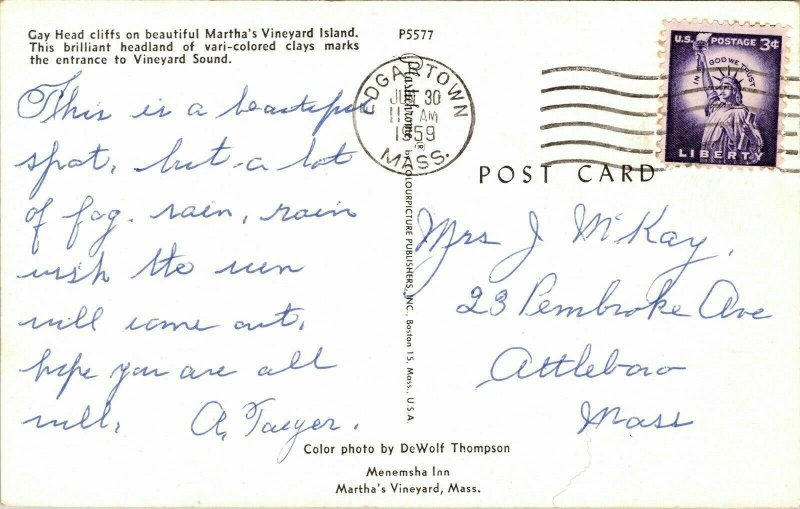 Gay Head cliffs on beautiful Martha's Vineyard Island.
This brilliant headland of vari-colored clays marks
the entrance to Vineyard Sound.
P5577
This is a beautiful
spot, but a lot
of fog, rain, rain
wish the sun
will come out,
hope you are all
well,
A.
Plastichrome ® by COLOURPICTURE PUBLISHERS, INC. Boston 15, Mass., U.S.A
EDGARTOWN
30
AM
1959
MASS.
U.S. POSTAGE 3¢
IN GOD WE TRUST
LIBERTY
POST CARD
Mrs J McKay,
23 Pembroke Ave
Attleboro
Mass
Color photo by DeWolf Thompson
Menemsha Inn
Martha's Vineyard, Mass.